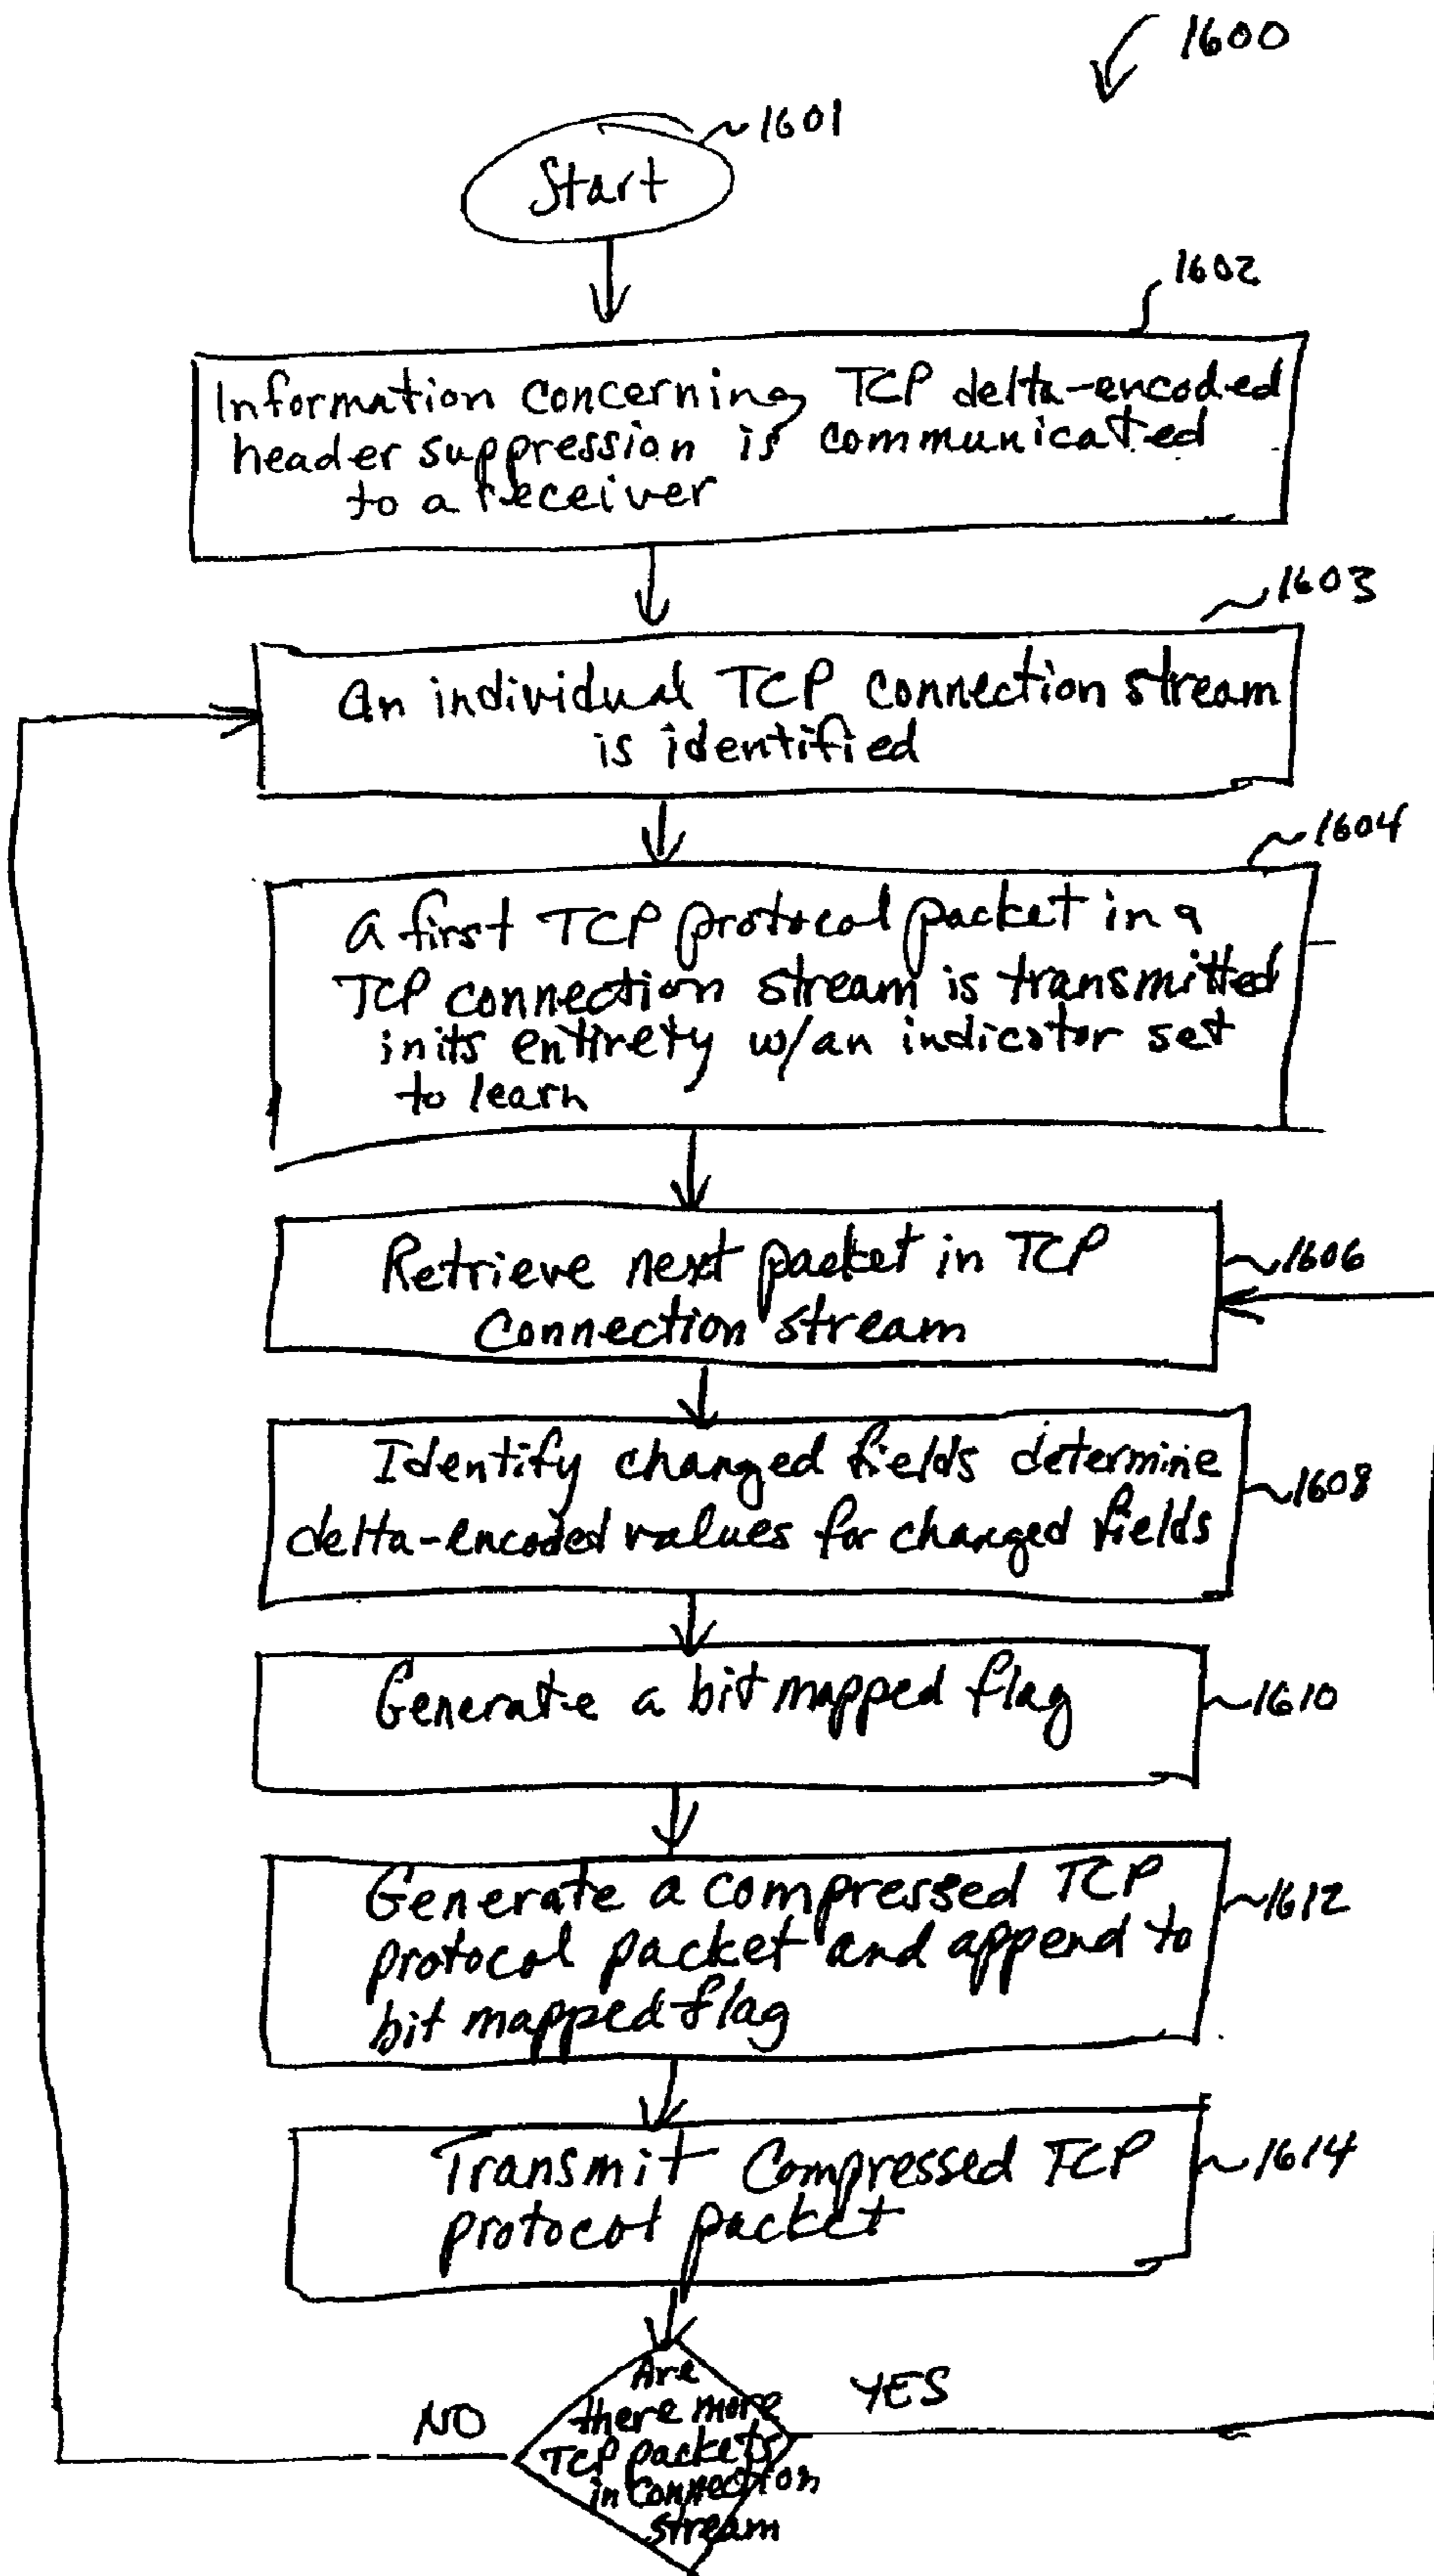 1600
1601
Start
1602
Information concerning TCP delta-encoded
header suppression is communicated
to a receiver
1603
An individual TCP connection stream
is identified
1604
A first TCP protocol packet in a
TCP connection stream is transmitted
in its entirety w/an indicator set
to learn
Retrieve next packet in TCP
Connection stream
1606
Identify changed fields determine
delta-encoded values for changed fields
1608
Generate a bit mapped flag
1610
Generate a compressed TCP
protocol packet and append to
bit mapped flag
1612
Transmit Compressed TCP
protocol packet
1614
NO
YES
Are
there more
TCP packets
in Connection
stream